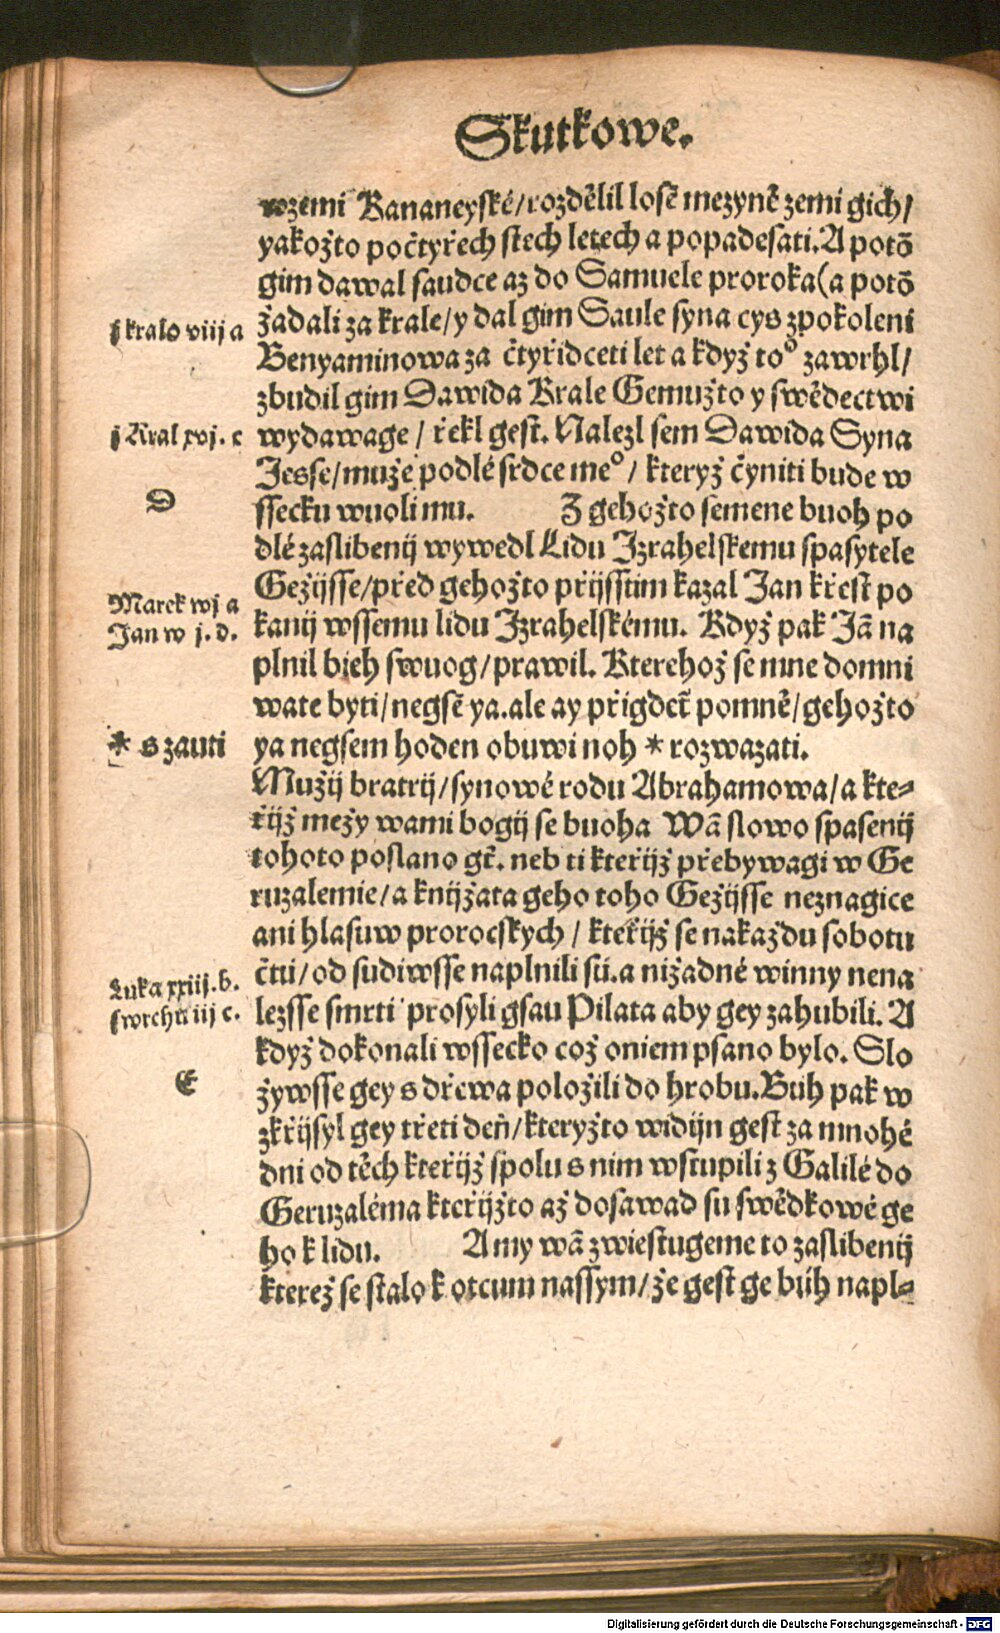 Skutkowe.
wzemi Kananeyské/rozdělil losē mezynē zemi gich/
yakožto počtyřech stech letech a popadesati. A potō
gim dawal saudce až do Samuele proroka(a potō
žadali za krale/y dal gim Saule syna cys zpokoleni
j kralo viij a
Benyaminowa za čtyřidceti let a když to° zawrhl/
zbudil gim Dawida Krale Gemužto y swědectwi
wydawage / řekl gest. Nalezl sem Dawida Syna
j Kral xvj. c
Jesse/muže podlé srdce me°/ kteryž čyniti bude w
ssecku wuoli mu. Z gehožto semene buoh po
D
dlé zaslibenij wywedl Lidu Izrahelskemu spasytele
Gežijsse/před gehožto přijsstim kazal Jan křest po
Marek wj a
Jan w j. d.
kanij wssemu lidu Izrahelskému. Když pak Jā na
plnil bieh swuog/prawil. Kterehož se mne domni
wate byti/negsē ya.ale ay přigdet̄ pomnē/gehožto
ya negsem hoden obuwi noh * rozwazati.
* s zauti
Mužij bratrij/synowé rodu Abrahamowa/a kte=
řijž mežy wami bogij se buoha Wā slowo spasenij
tohoto poslano gt̄. neb ti kteřijž přebywagi w Ge
ruzalemie/a knijžata geho toho Gežijsse neznagice
ani hlasuw prorockych / kteřijž se nakaždu sobotu
čtu/od sudiwsse naplnili sú.a nižadné winny nena
Luka xxiij. b.
lezsse smrti prosyli gsau Pilata aby gey zahubili. A
swrchu iij c.
když dokonali wssecko což oniem psano bylo. Slo
žywsse gey s dřewa položili do hrobu. Búh pak w
E
zkřijsyl gey třeti deň/kteryžto widijn gest za mnohé
dni od těch kteřijž spolu s nim wstupili z Galilé do
Geruzaléma kteřijžto až dosawad su swědkowé ge
ho k lidu. A my wā zwiestugeme to zaslibenij
kterež se stalo k otcum nassym/že gest ge búh napl=
Digitalisierung gefördert durch die Deutsche Forschungsgemeinschaft - DFG